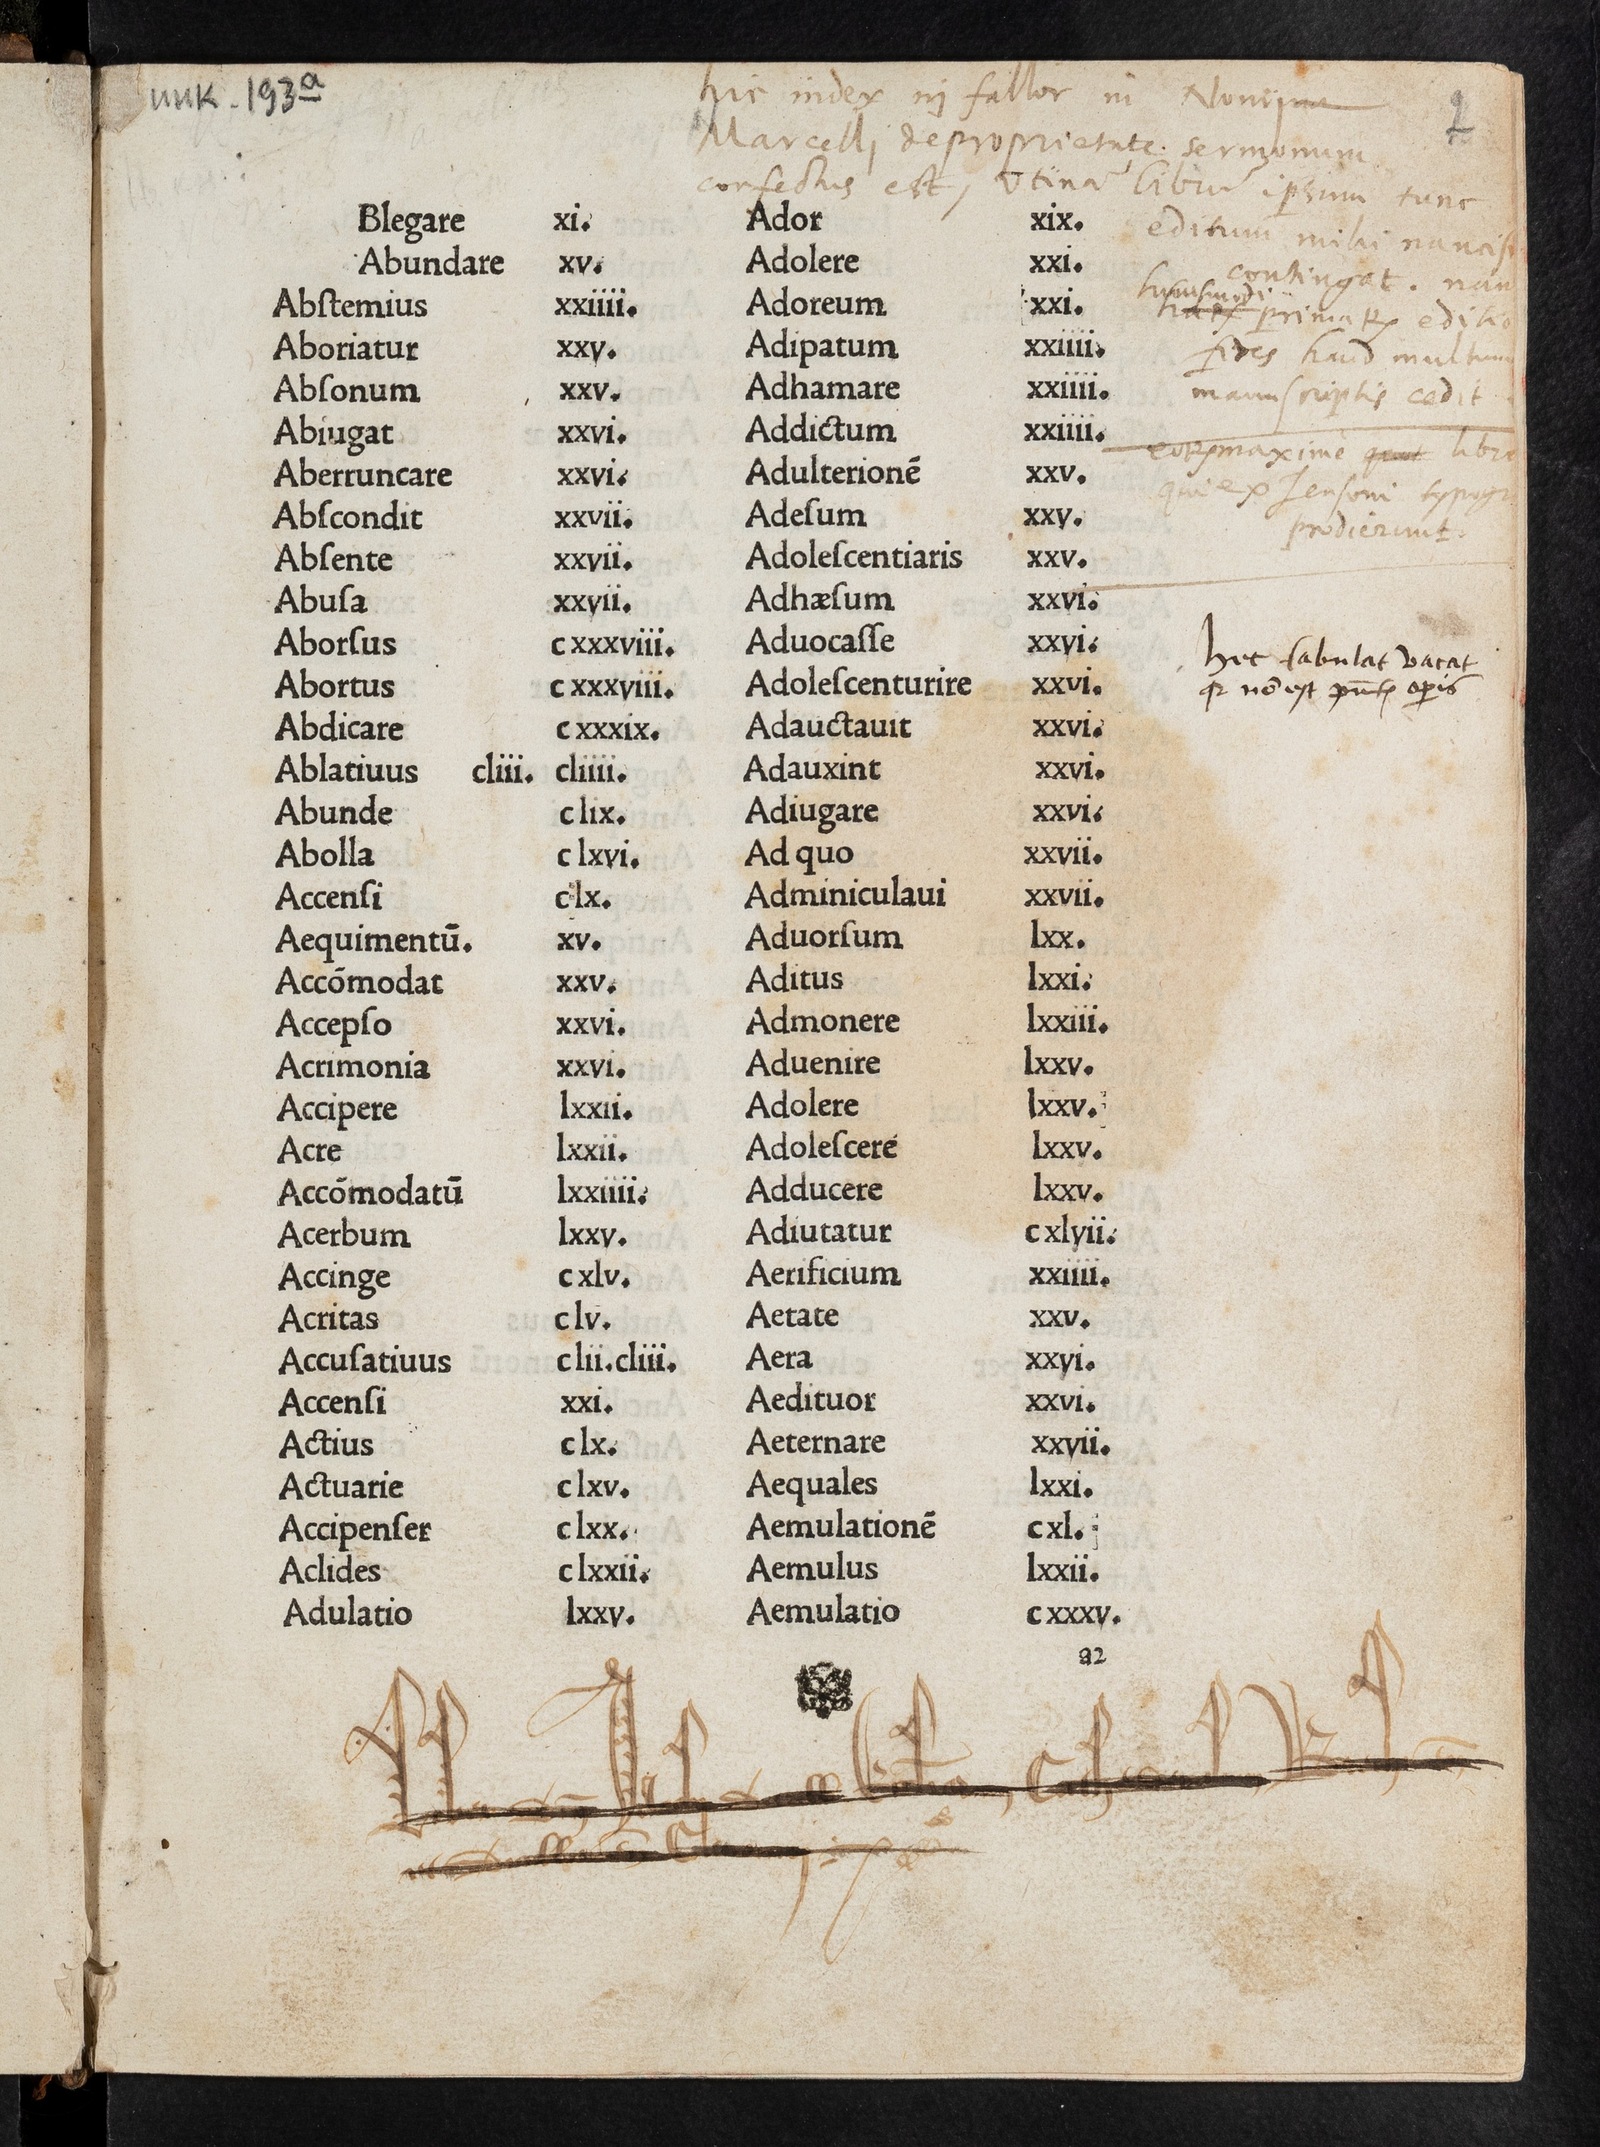 unk. 193a
2
hic index nj fallor in Nonij
Marcelli de proprietate sermonum
confectus est, Vtinā libru᷉ ipsum tunc
editum mihi nancis
contingat. nan
huiusmodi
primaꝝ editio
fides haud multum
manuscriptis cedit
eoꝝ maxime libro
qui ex Jensoni typogr
prodierunt.
Blegare xi.
Abundare xv.
Abſtemius xxiiii.
Aboriatur xxv.
Abſonum xxv.
Abiugat xxvi.
Aberruncare xxvi.
Abſcondit xxvii.
Abſente xxvii.
Abuſa xxvii.
Aborſus cxxxviii.
Abortus cxxxviii.
Abdicare cxxxix.
Ablatiuus cliii. cliiii.
Abunde clix.
Abolla clxvi.
Accenſi clx.
Aequimentū. xv.
Accōmodat xxv.
Accepſo xxvi.
Acrimonia xxvi.
Accipere lxxii.
Acre lxxii.
Accōmodatū lxxiiii.
Acerbum lxxv.
Accinge cxlv.
Acritas clv.
Accuſatiuus clii.cliii.
Accenſi xxi.
Actius clx.
Actuarie clxv.
Accipenſer clxx.
Aclides clxxii.
Adulatio lxxv.
Ador xix.
Adolere xxi.
Adoreum xxi.
Adipatum xxiiii.
Adhamare xxiiii.
Addictum xxiiii.
Adulterionē xxv.
Adeſum xxv.
Adoleſcentiaris xxv.
Adhæſum xxvi.
Aduocaſſe xxvi.
Adoleſcenturire xxvi.
Adauctauit xxvi.
Adauxint xxvi.
Adiugare xxvi.
Ad quo xxvii.
Adminiculaui xxvii.
Aduorſum lxx.
Aditus lxxi.
Admonere lxxiii.
Aduenire lxxv.
Adolere lxxv.
Adoleſcere lxxv.
Adducere lxxv.
Adiutatur cxlvii.
Aerificium xxiiii.
Aetate xxv.
Aera xxvi.
Aedituor xxvi.
Aeternare xxvii.
Aequales lxxi.
Aemulationē cxl.
Aemulus lxxii.
Aemulatio cxxxv.
a2
hec tabula vacat
qr nō est operis